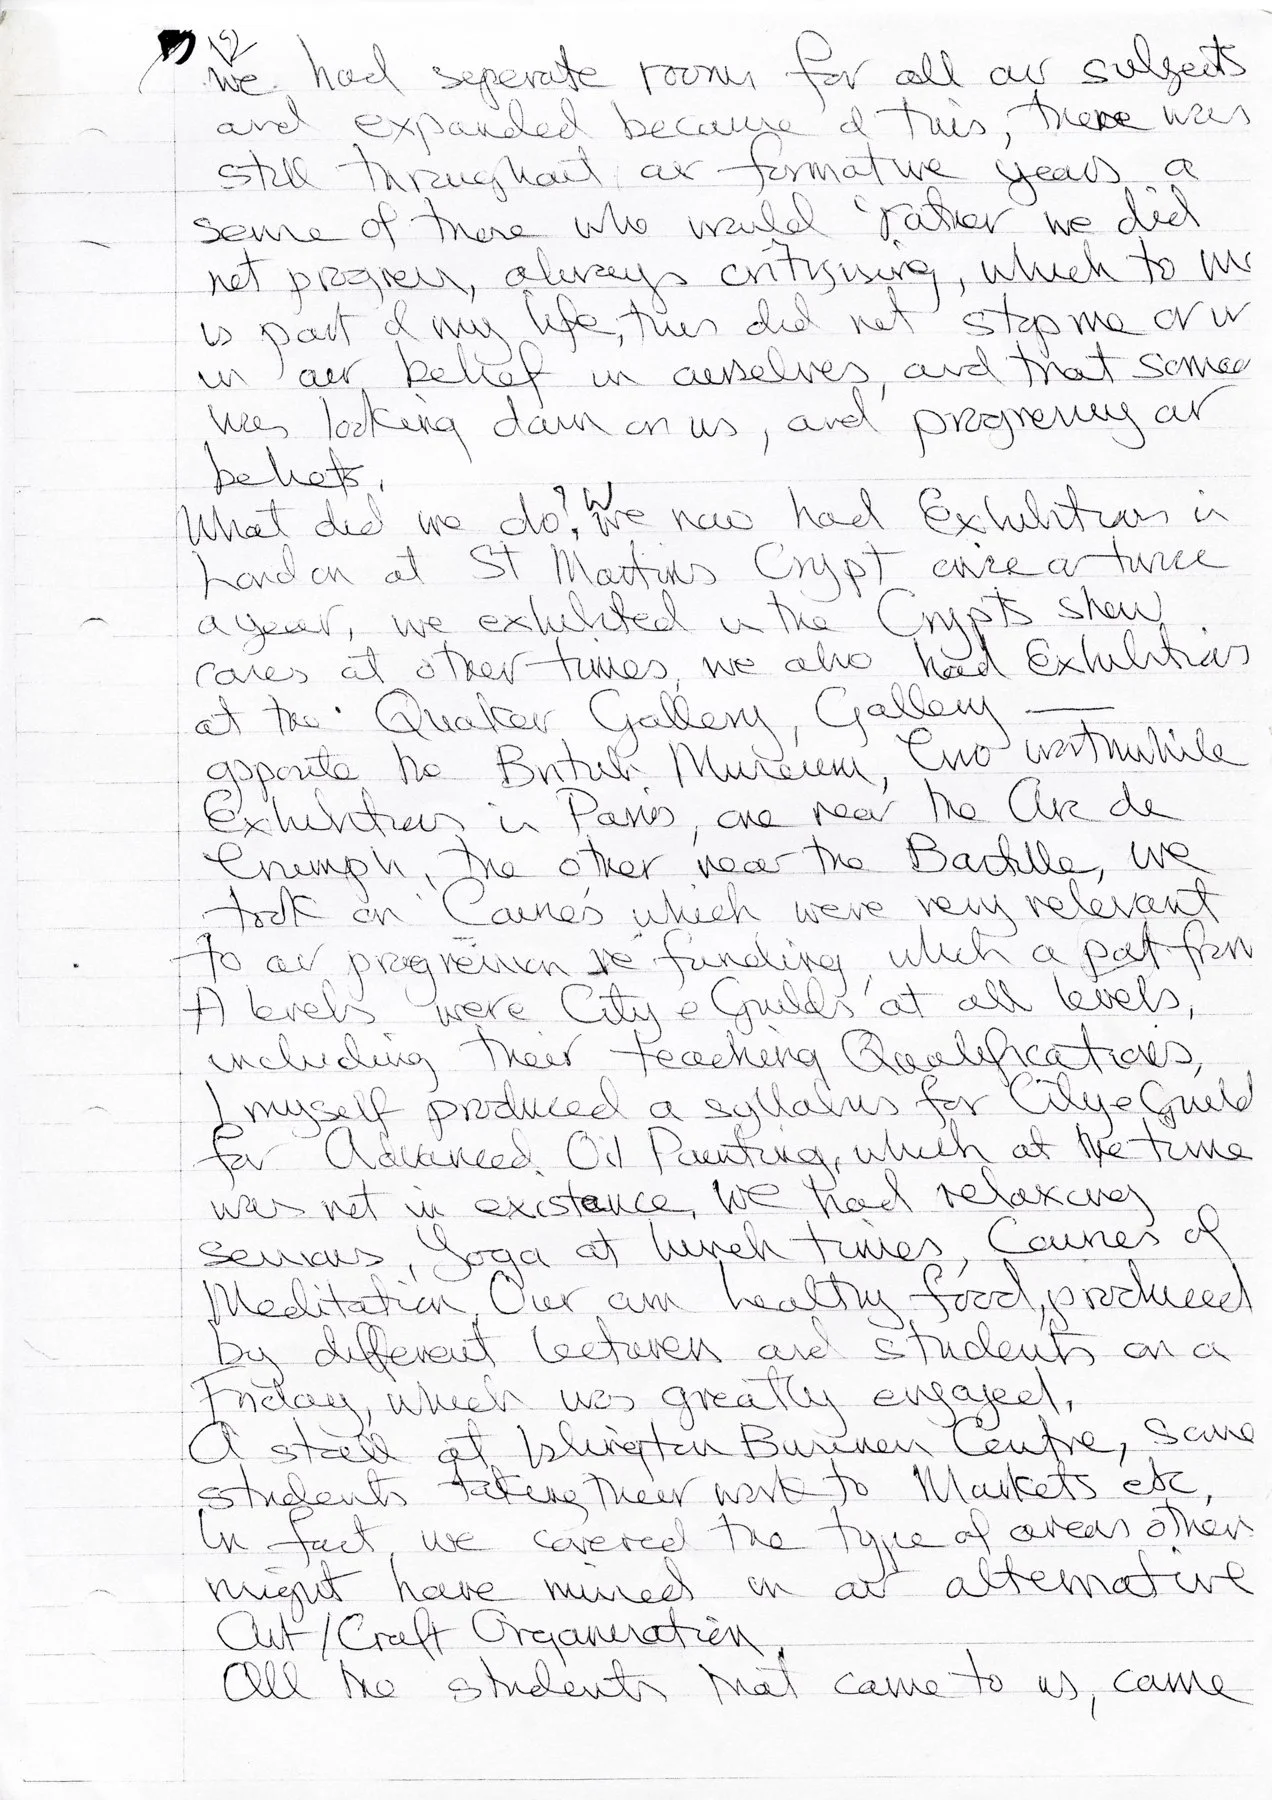 we had seperate rooms for all our subjects
and expanded because of this, there was
still throughout our formative years a
sense of those who would 'rather we did
not progress, always critisising, which to me
is part of my life, this did not stop me or us
in our belief in ourselves, and that someo
was looking down on us, and progressing our
beliefs.
What did we do? We now had Exhibitions in
London at St Martins Crypt once or twice
a year, we exhibited in the Crypts show
cases at other times, we also had Exhibitions
at the Quaker Gallery, Gallery —
opposite the British Museum, Two worthwhile
Exhibitions in Paris, one near the Arc de
Triumph, the other near the Bastille, we
took on Courses which were very relevant
to our progression re funding, which a part from
A levels were City & Guilds at all levels,
including their teaching Qualifications,
I myself produced a syllabus for City & Guild
for Advanced Oil Painting, which at the time
was not in existance, we had relaxing
sessions, Yoga at lunch times, Courses of
Meditation, Our own healthy food, produced
by different lecturers and students on a
Friday, which was greatly enjoyed.
A stall at Islington Business Centre, some
students taking their work to Markets etc,
In fact, we covered the type of areas others
might have missed in our alternative
Art/Craft Organisation.
All the students that came to us, came